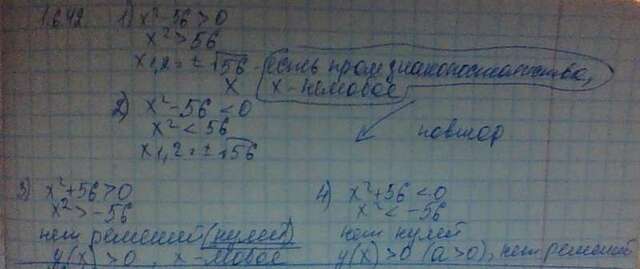 1642 1) x²-56>0
x²>56
x1,2=±√56 (есть пром. знакопостоянства,
x x-немовое
2) x²-56<0
x²<56 повтор
x1,2=±√56
3) x²+56>0
x²>-56
нет решений (нулей)
y(x)>0, x-любое
4) x²+56<0
x²<-56
нет нулей
y(x)>0 (a>0), нет решений